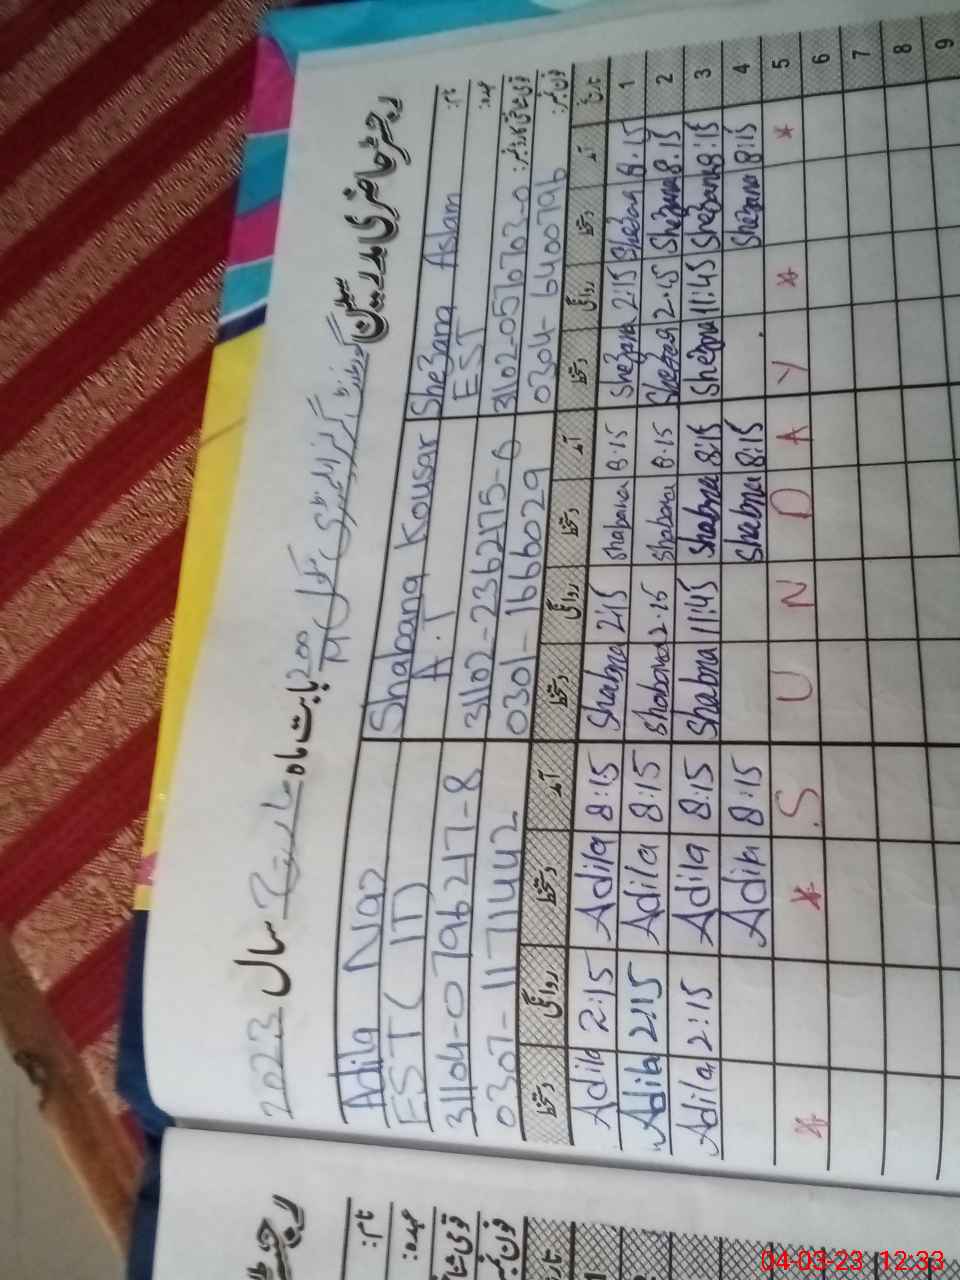 رجسٹر حاضری مدرسین
گورنمنٹ گرلز
بابت ماہ مارچ سال 2023
نام: Shezana Aslam Shabana Kousar Adila Naz
عہدہ: EST A.T EST (IT)
قومی شناختی کارڈ نمبر: 31102-0567020-0 31102-2362175-6 31104-0796217-8
فون نمبر: 0304-6400796 0301-1666029 0307-1171442
تاریخ آمد دستخط روانگی دستخط آمد دستخط روانگی دستخط آمد دستخط روانگی دستخط
1 8:15 Shezana 2:15 Shezana 8:15 Shabana 2:15 Shabna 8:15 Adila 2:15 Adila
2 8:15 Shezana 2:45 Shezana 8:15 Shabana 2:15 Shabana 8:15 Adila 2:15 Adila
3 8:15 Shezana 11:45 Shezana 8:15 Shabna 11:45 Shabna 8:15 Adila 2:15 Adila
4 8:15 Shezana 8:15 Shabna 8:15 Adila
5 * * S U N D A Y * *
6
7
8
9
نام:
عہدہ:
04-03-23 12:33